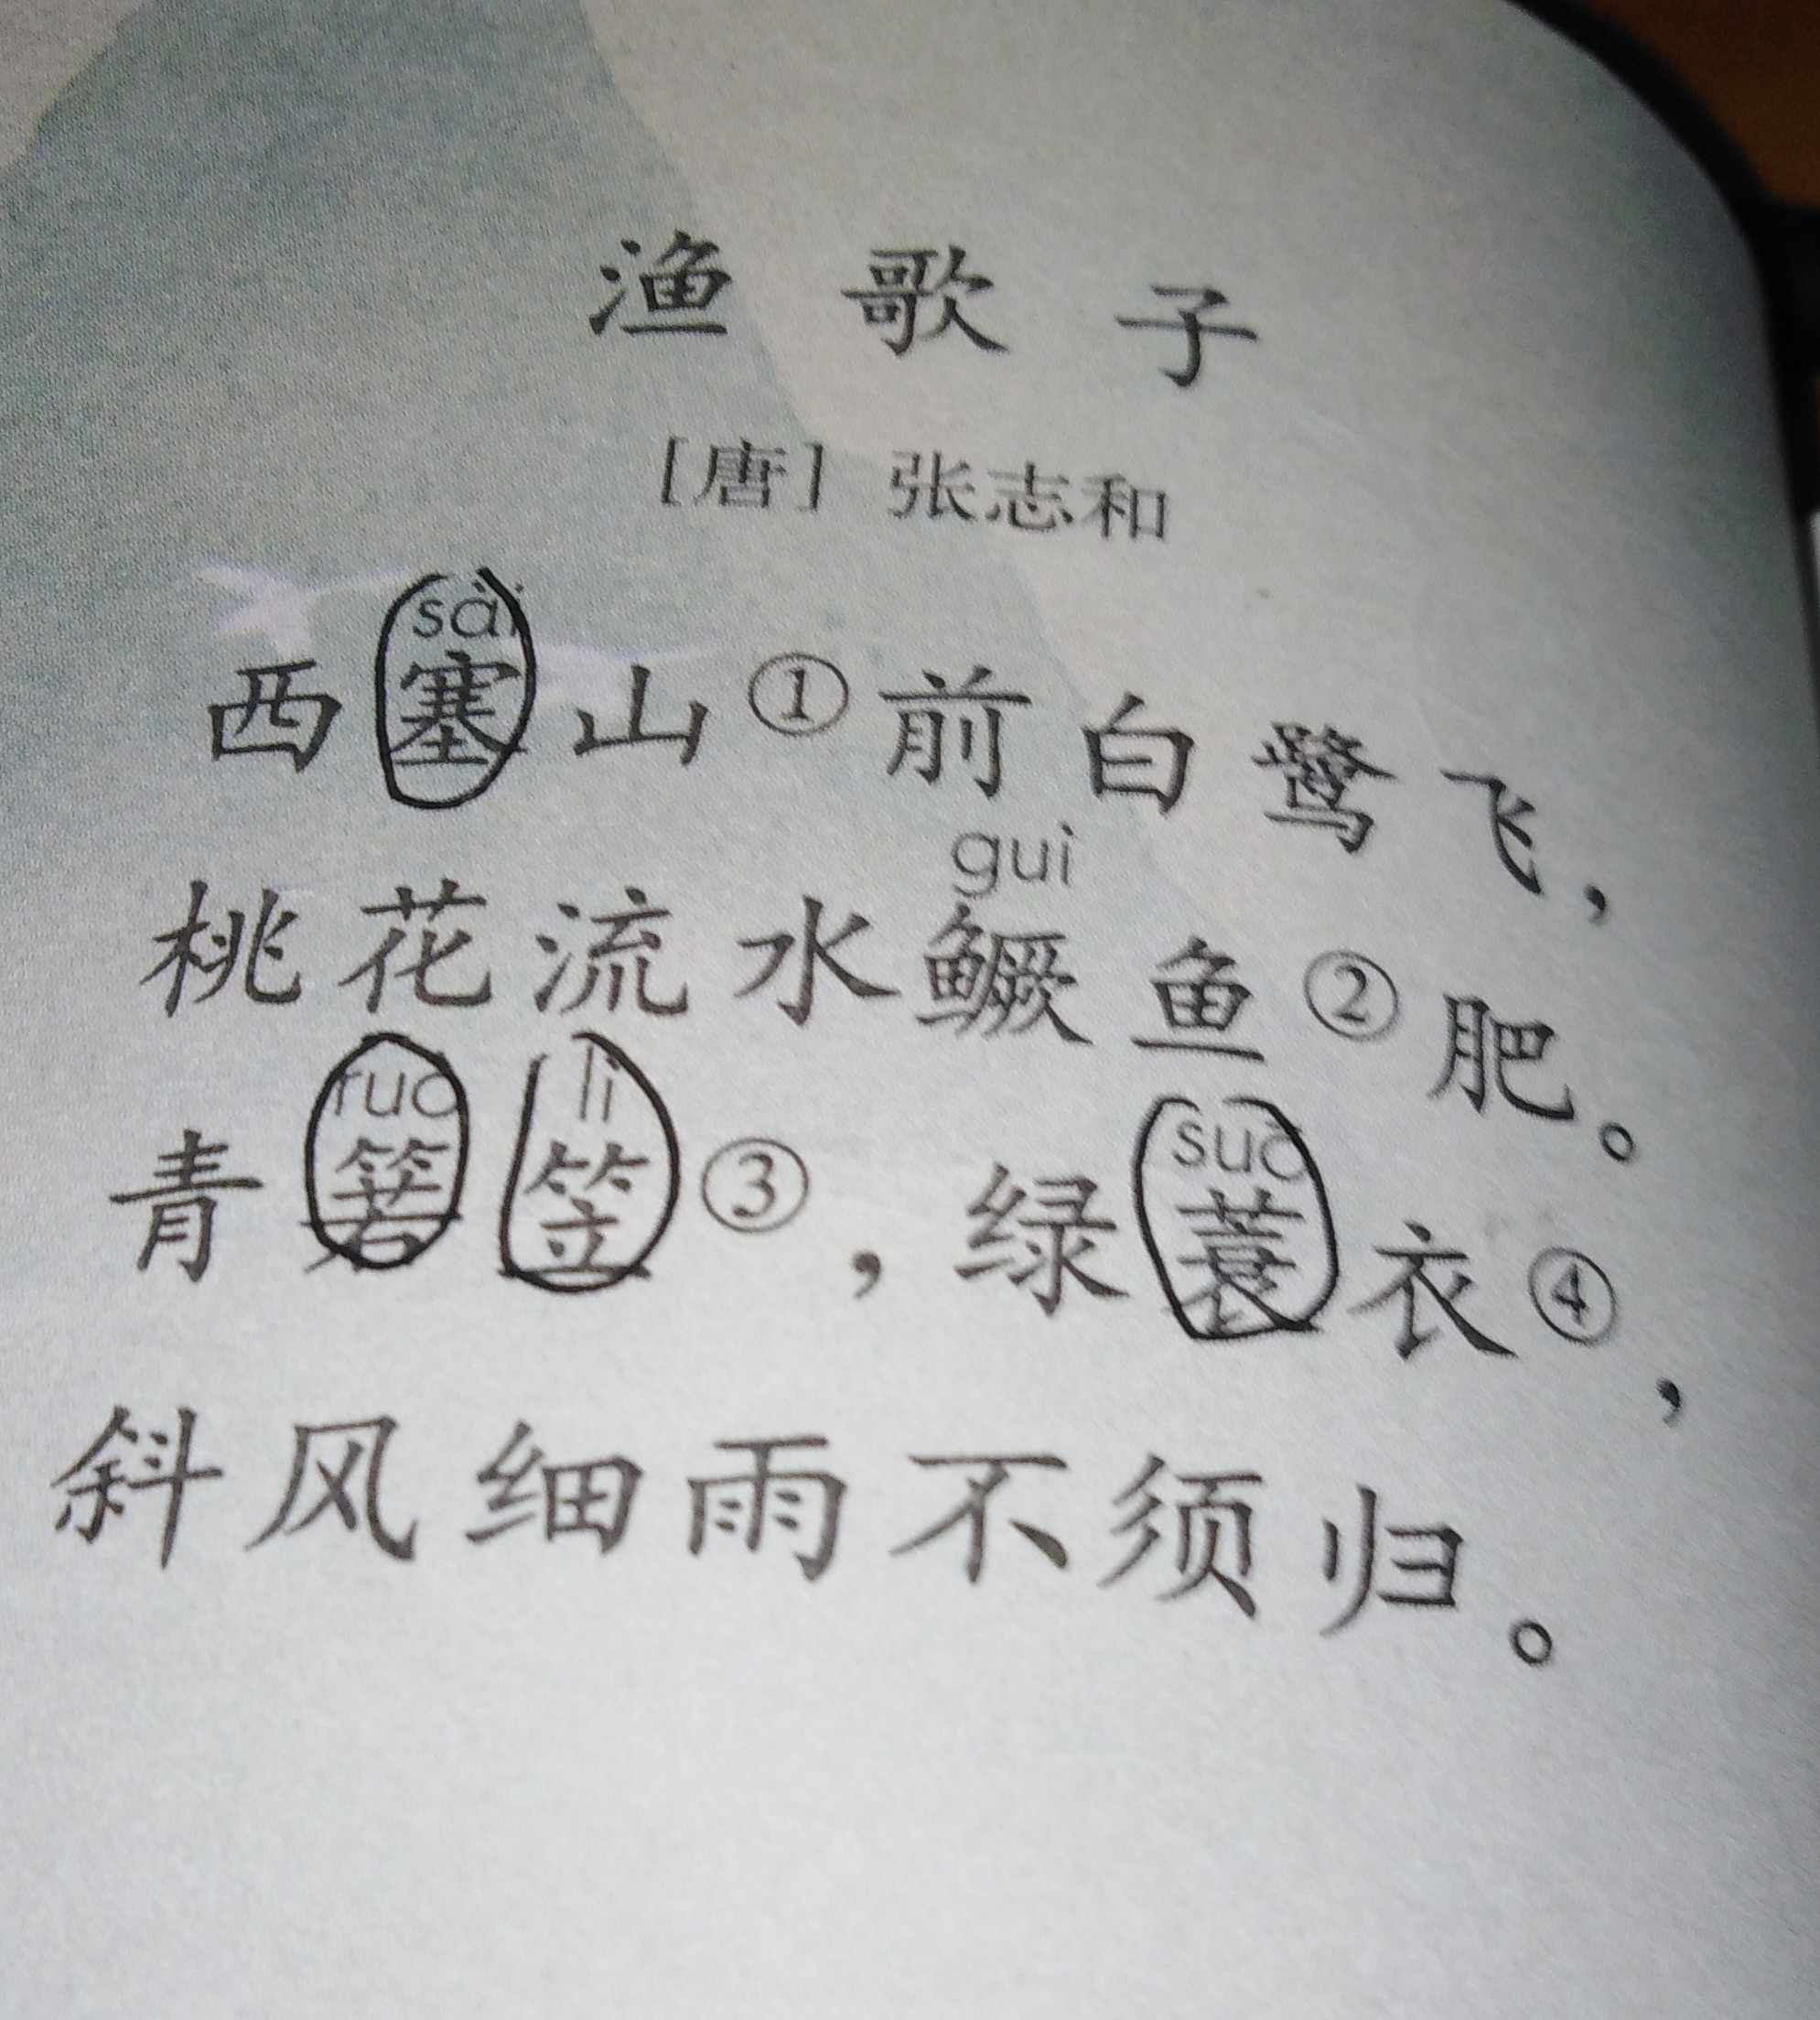 渔歌子
[唐] 张志和
sài
西塞山①前白鹭飞，
guì
桃花流水鳜鱼②肥。
ruò lì suō
青箬笠③，绿蓑衣④，
斜风细雨不须归。